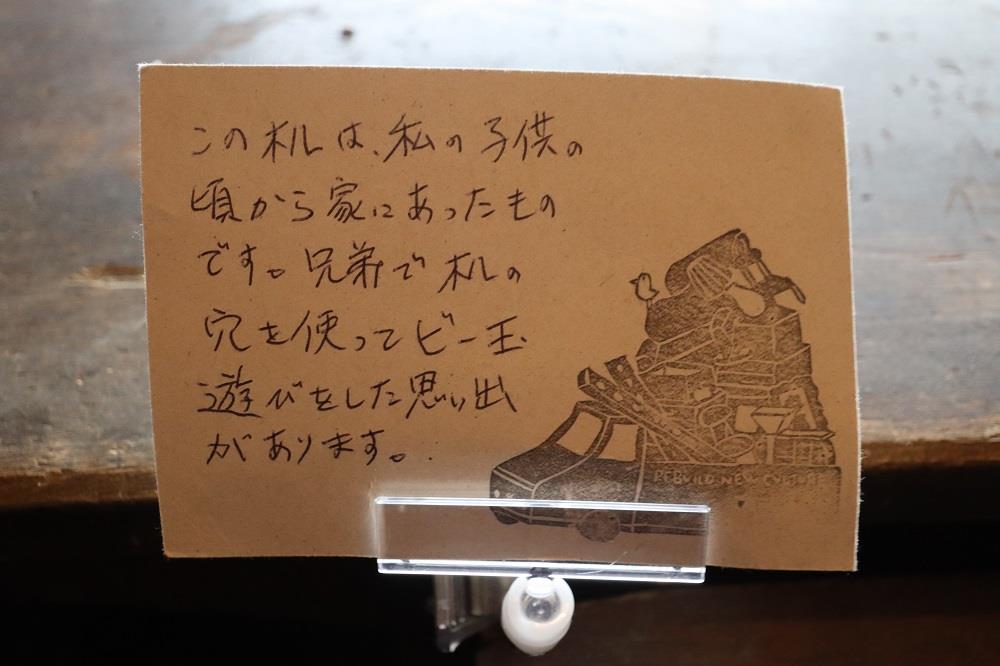 この机は、私の子供の
頃から家にあったもの
です。兄弟で机の
穴を使ってビー玉
遊びをした思い出
があります。
REBUILD NEW CULTURE